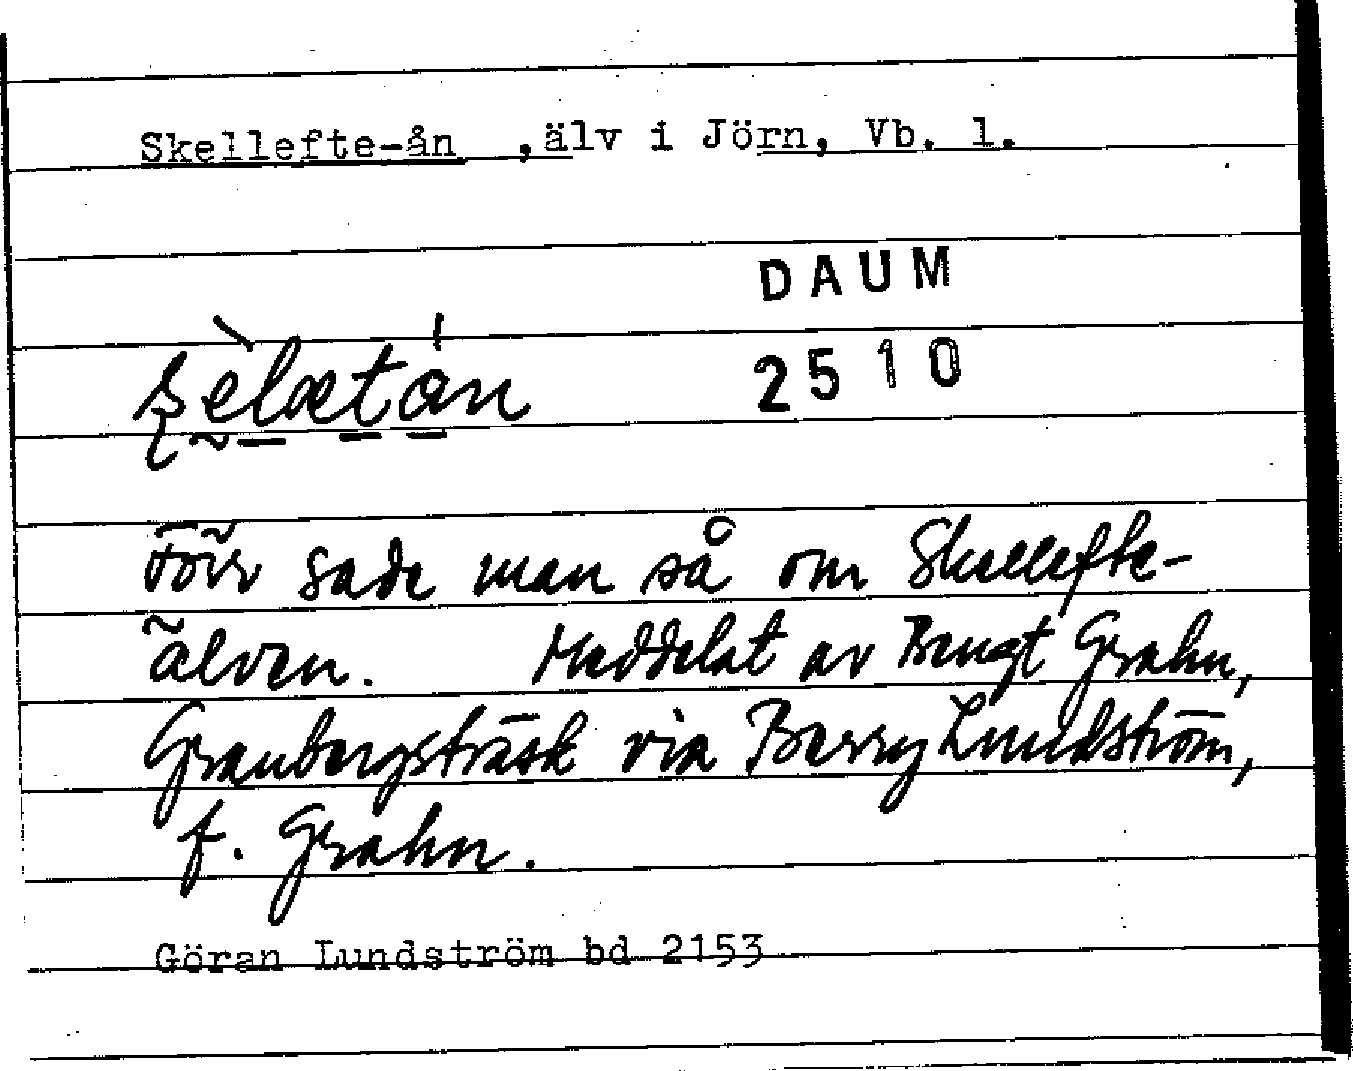 Skellefte-ån , älv i Jörn, Vb. l.
DAUM
2510
Förr sade man så om Skellefte-
älven. Meddelat av Bengt Grahn,
Granbergsträsk via Berry Lundström,
f. Grahn.
Göran Lundström bd 2153